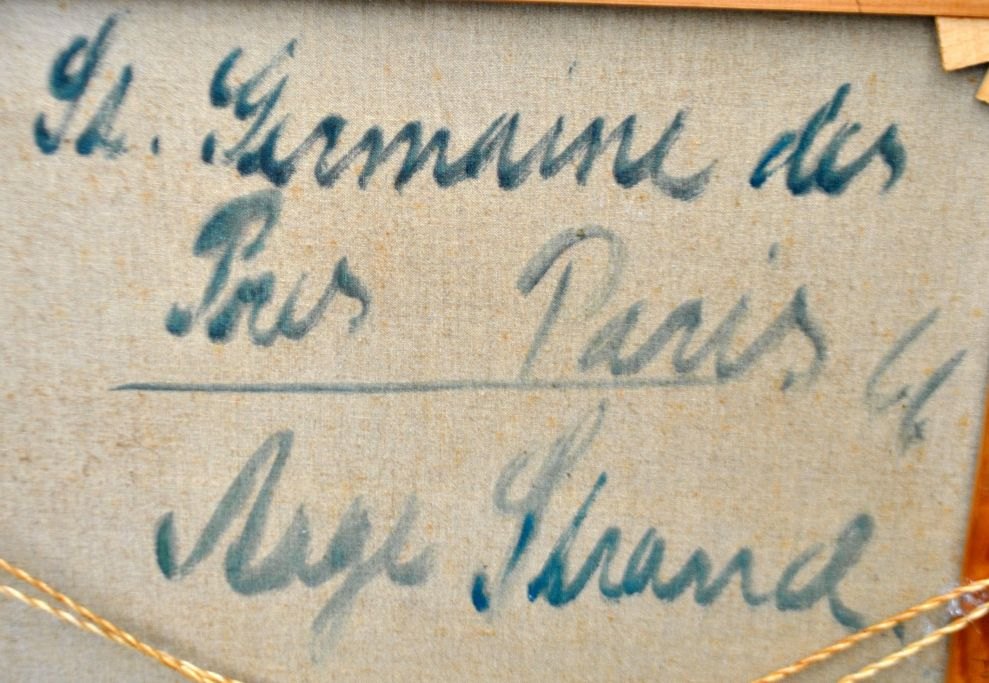 St. Germaine des
Pres Paris 66
Aage Strand